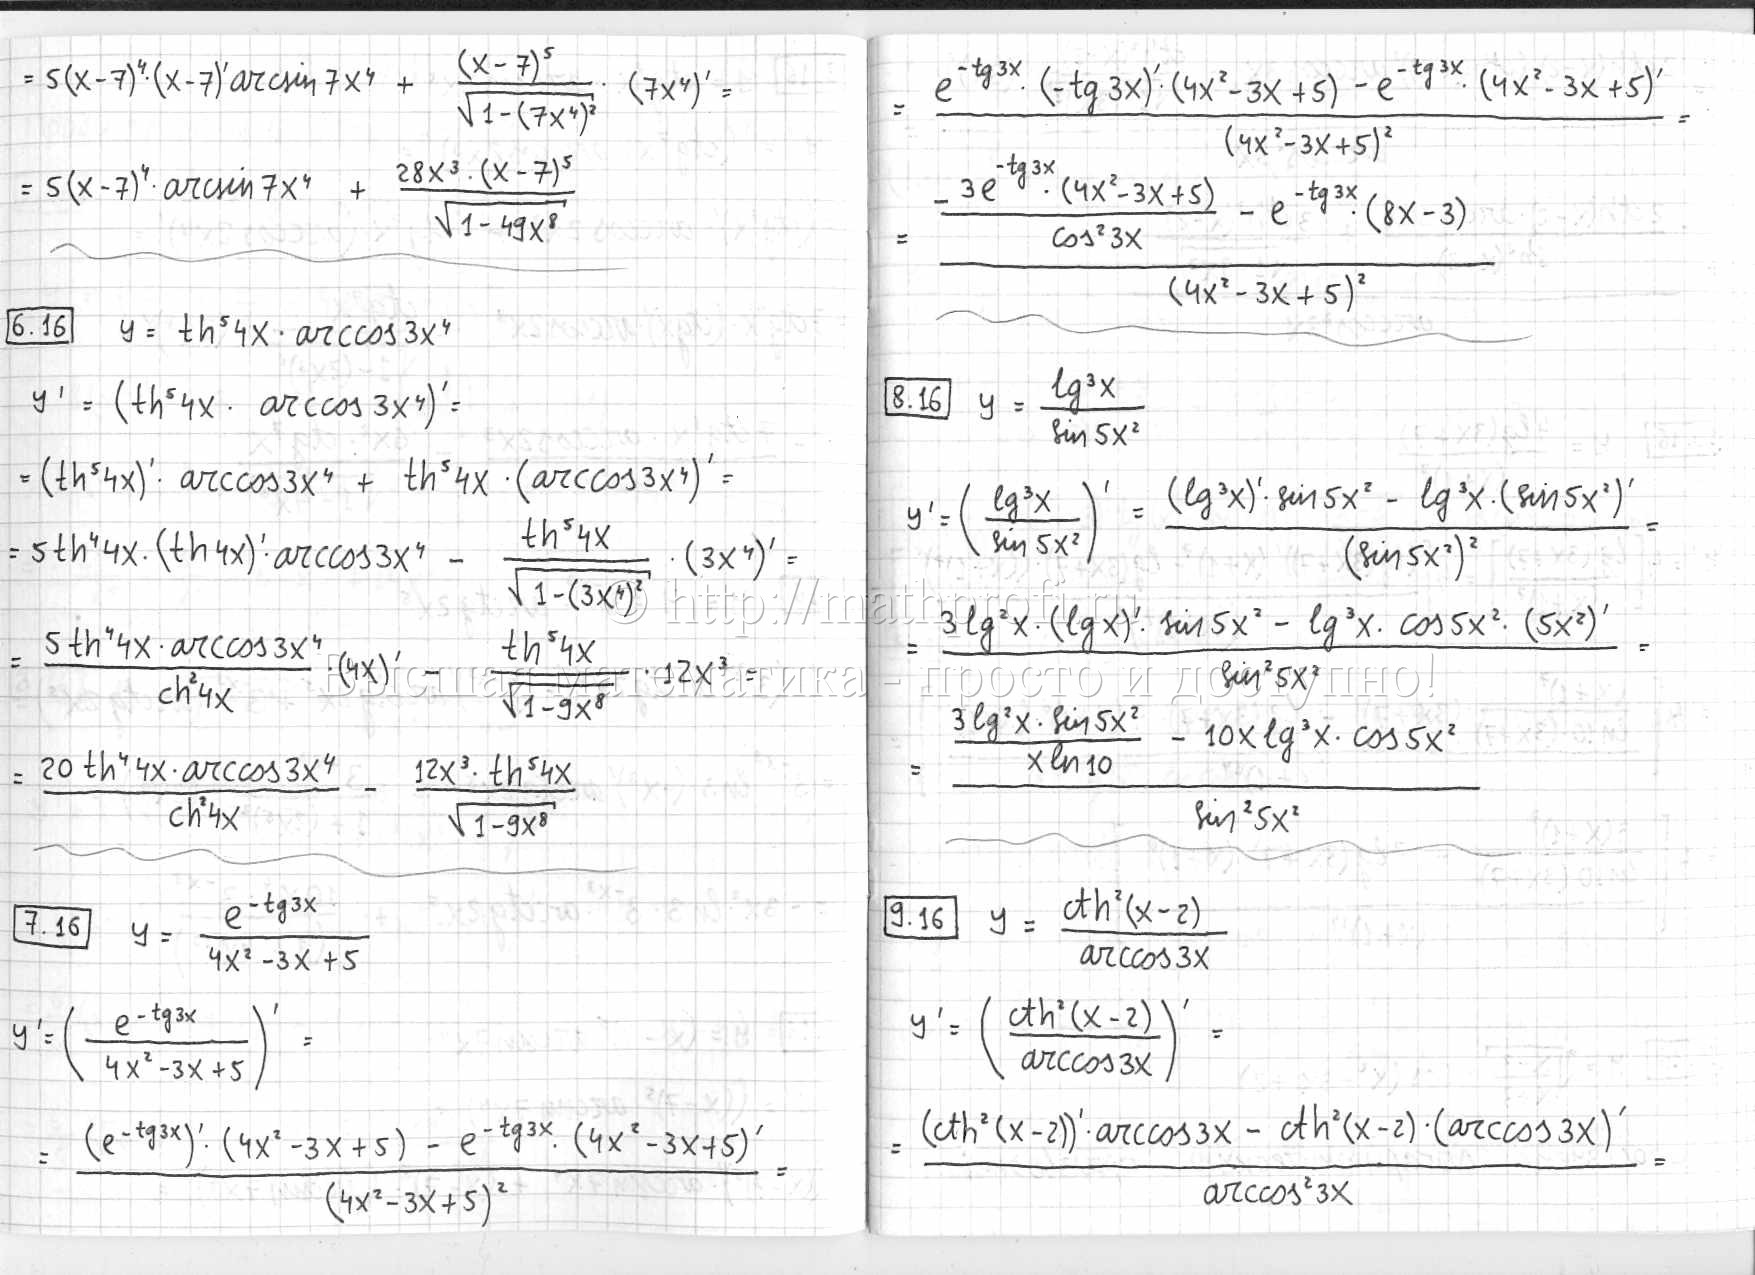 = 5(x-7)⁴·(x-7)' arcsin 7x⁴ + (x-7)⁵/√(1-(7x⁴)²) · (7x⁴)' =
= 5(x-7)⁴· arcsin 7x⁴ + 28x³·(x-7)⁵/√(1-49x⁸)
6.16 y = th⁵4x · arccos 3x⁴
y' = (th⁵4x · arccos 3x⁴)' =
= (th⁵4x)' · arccos 3x⁴ + th⁵4x · (arccos 3x⁴)' =
= 5th⁴4x·(th 4x)'· arccos 3x⁴ - th⁵4x/√(1-(3x⁴)²) · (3x⁴)' =
= 5th⁴4x · arccos 3x⁴/ch²4x · (4x)' - th⁵4x/√(1-9x⁸) · 12x³ =
= 20 th⁴4x · arccos 3x⁴/ch²4x - 12x³ · th⁵4x/√(1-9x⁸)
7.16 y = e^(-tg3x)/(4x²-3x+5)
y' = (e^(-tg3x)/(4x²-3x+5))' =
= ((e^(-tg3x))'·(4x²-3x+5) - e^(-tg3x)·(4x²-3x+5)')/(4x²-3x+5)² =
= (e^(-tg3x)·(-tg3x)'·(4x²-3x+5) - e^(-tg3x)·(4x²-3x+5)')/(4x²-3x+5)² =
= (-3e^(-tg3x)·(4x²-3x+5)/cos²3x - e^(-tg3x)·(8x-3))/(4x²-3x+5)²
8.16 y = lg³x/sin5x²
y' = (lg³x/sin5x²)' = ((lg³x)'·sin5x² - lg³x·(sin5x²)')/(sin5x²)² =
= (3lg²x·(lgx)'· sin5x² - lg³x· cos5x²·(5x²)')/sin²5x² =
= (3lg²x·sin5x²/(x ln10) - 10x lg³x· cos5x²)/sin²5x²
9.16 y = cth²(x-2)/arccos3x
y' = (cth²(x-2)/arccos3x)' =
= ((cth²(x-2))'·arccos3x - cth²(x-2)·(arccos3x)')/arccos²3x =
© http://mathprofi.ru
Высшая математика - просто и доступно!